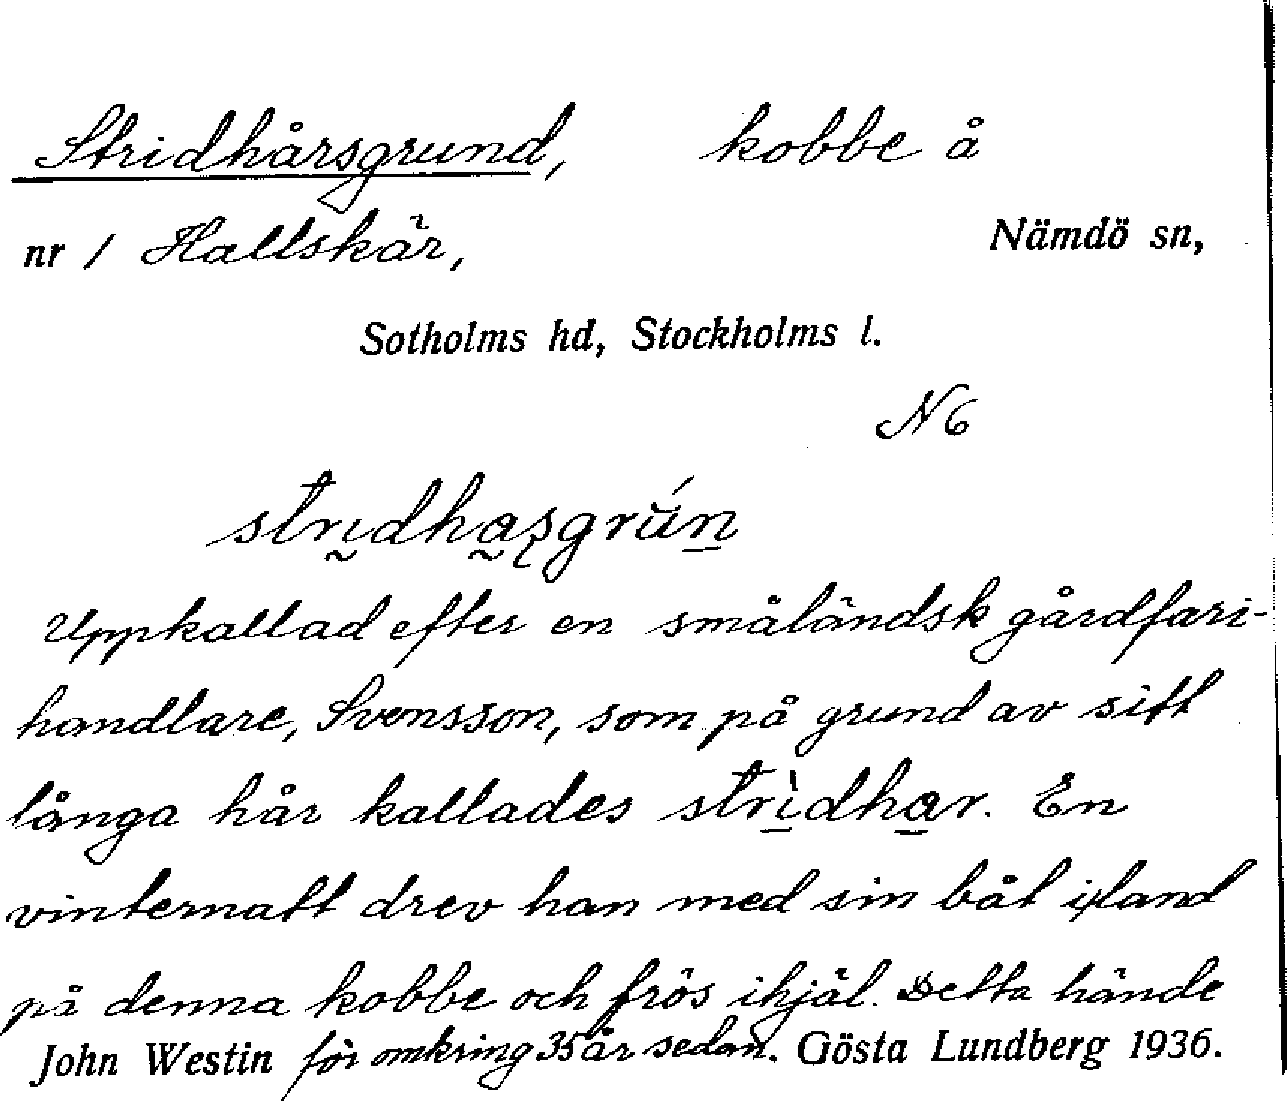 Stridhårsgrund, kobbe å
nr 1 Hallskär, Nämdö sn,
Sotholms hd, Stockholms l.
N 6
strḭdha̰ʂgrǘn̲
Uppkallad efter en småländsk gårdfari-
handlare, Svensson, som på grund av sitt
långa hår kallades strì̲dha̲r. En
vinternatt drev han med sin båt iland
på denna kobbe och frös ihjäl. Detta hände
John Westin för omkring 35 år sedan. Gösta Lundberg 1936.